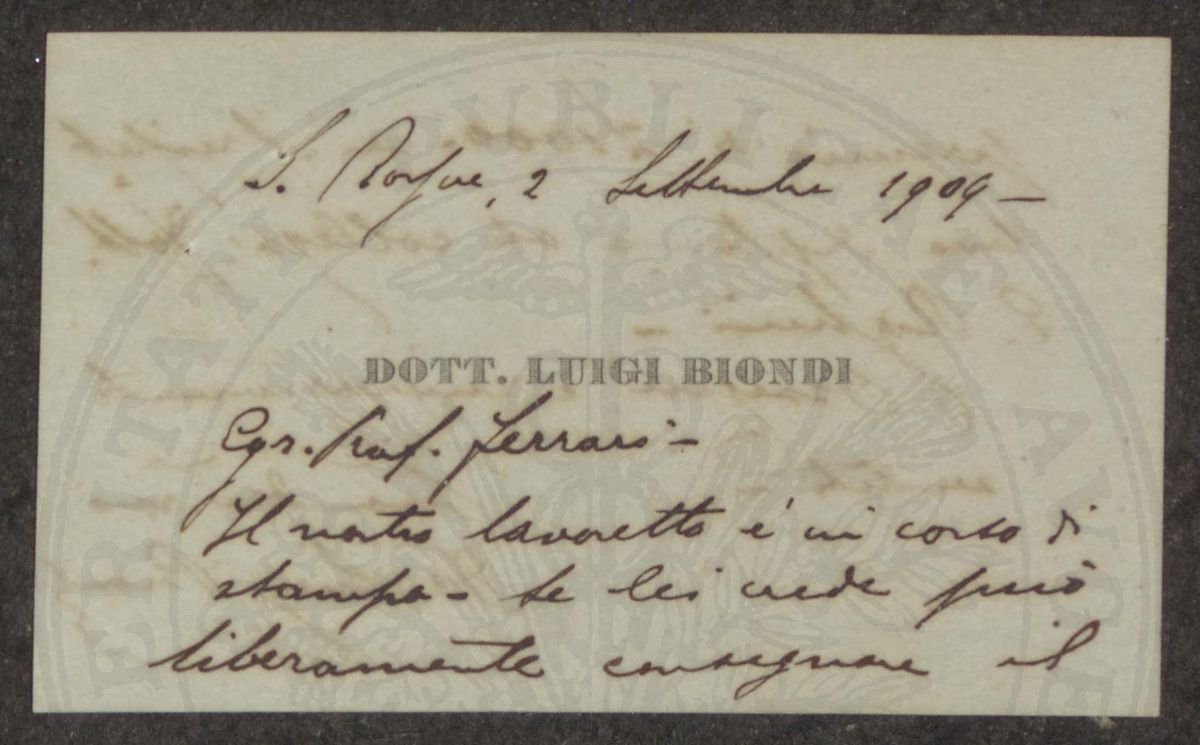 2 Settembre 1909 –
DOTT. LUIGI BIONDI
Egr. Prof. Ferrari –
Il nostro lavoretto è in corso di
stampa – Se lei crede può
liberamente consegnare il